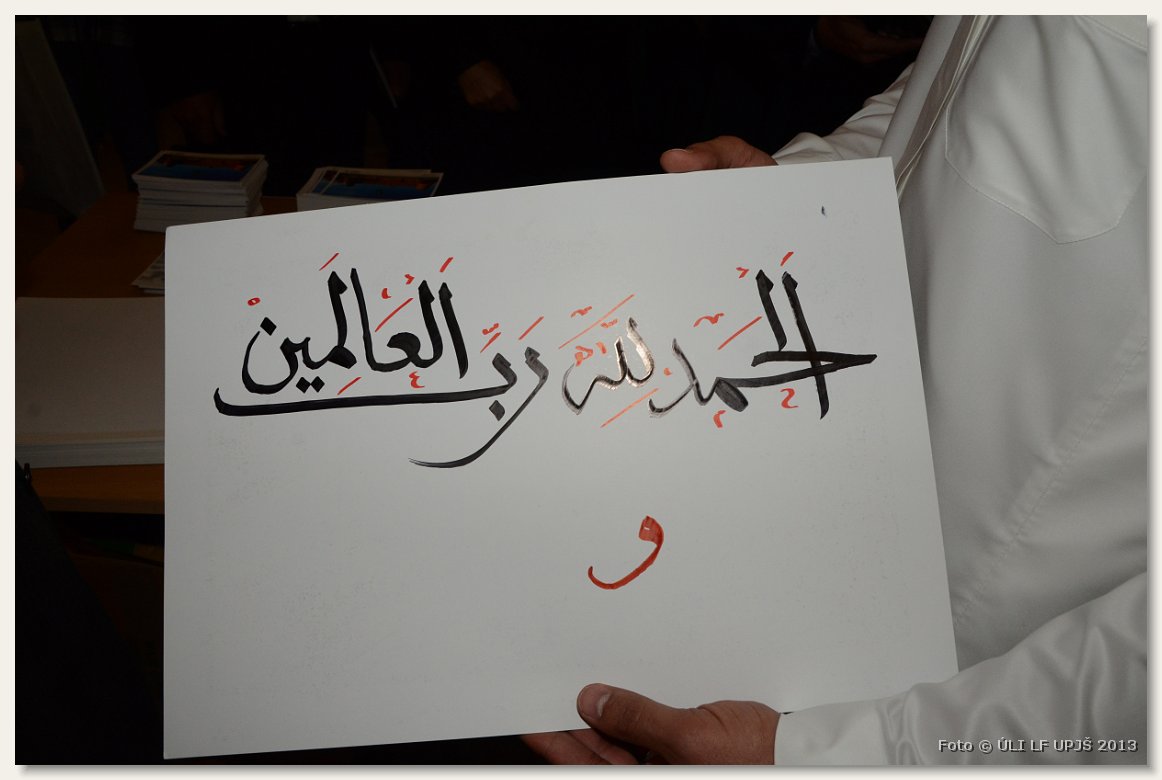 الْحَمْدُ لِلَّهِ رَبِّ الْعَالَمِينَ
و
Foto © ÚLI LF UPJŠ 2013